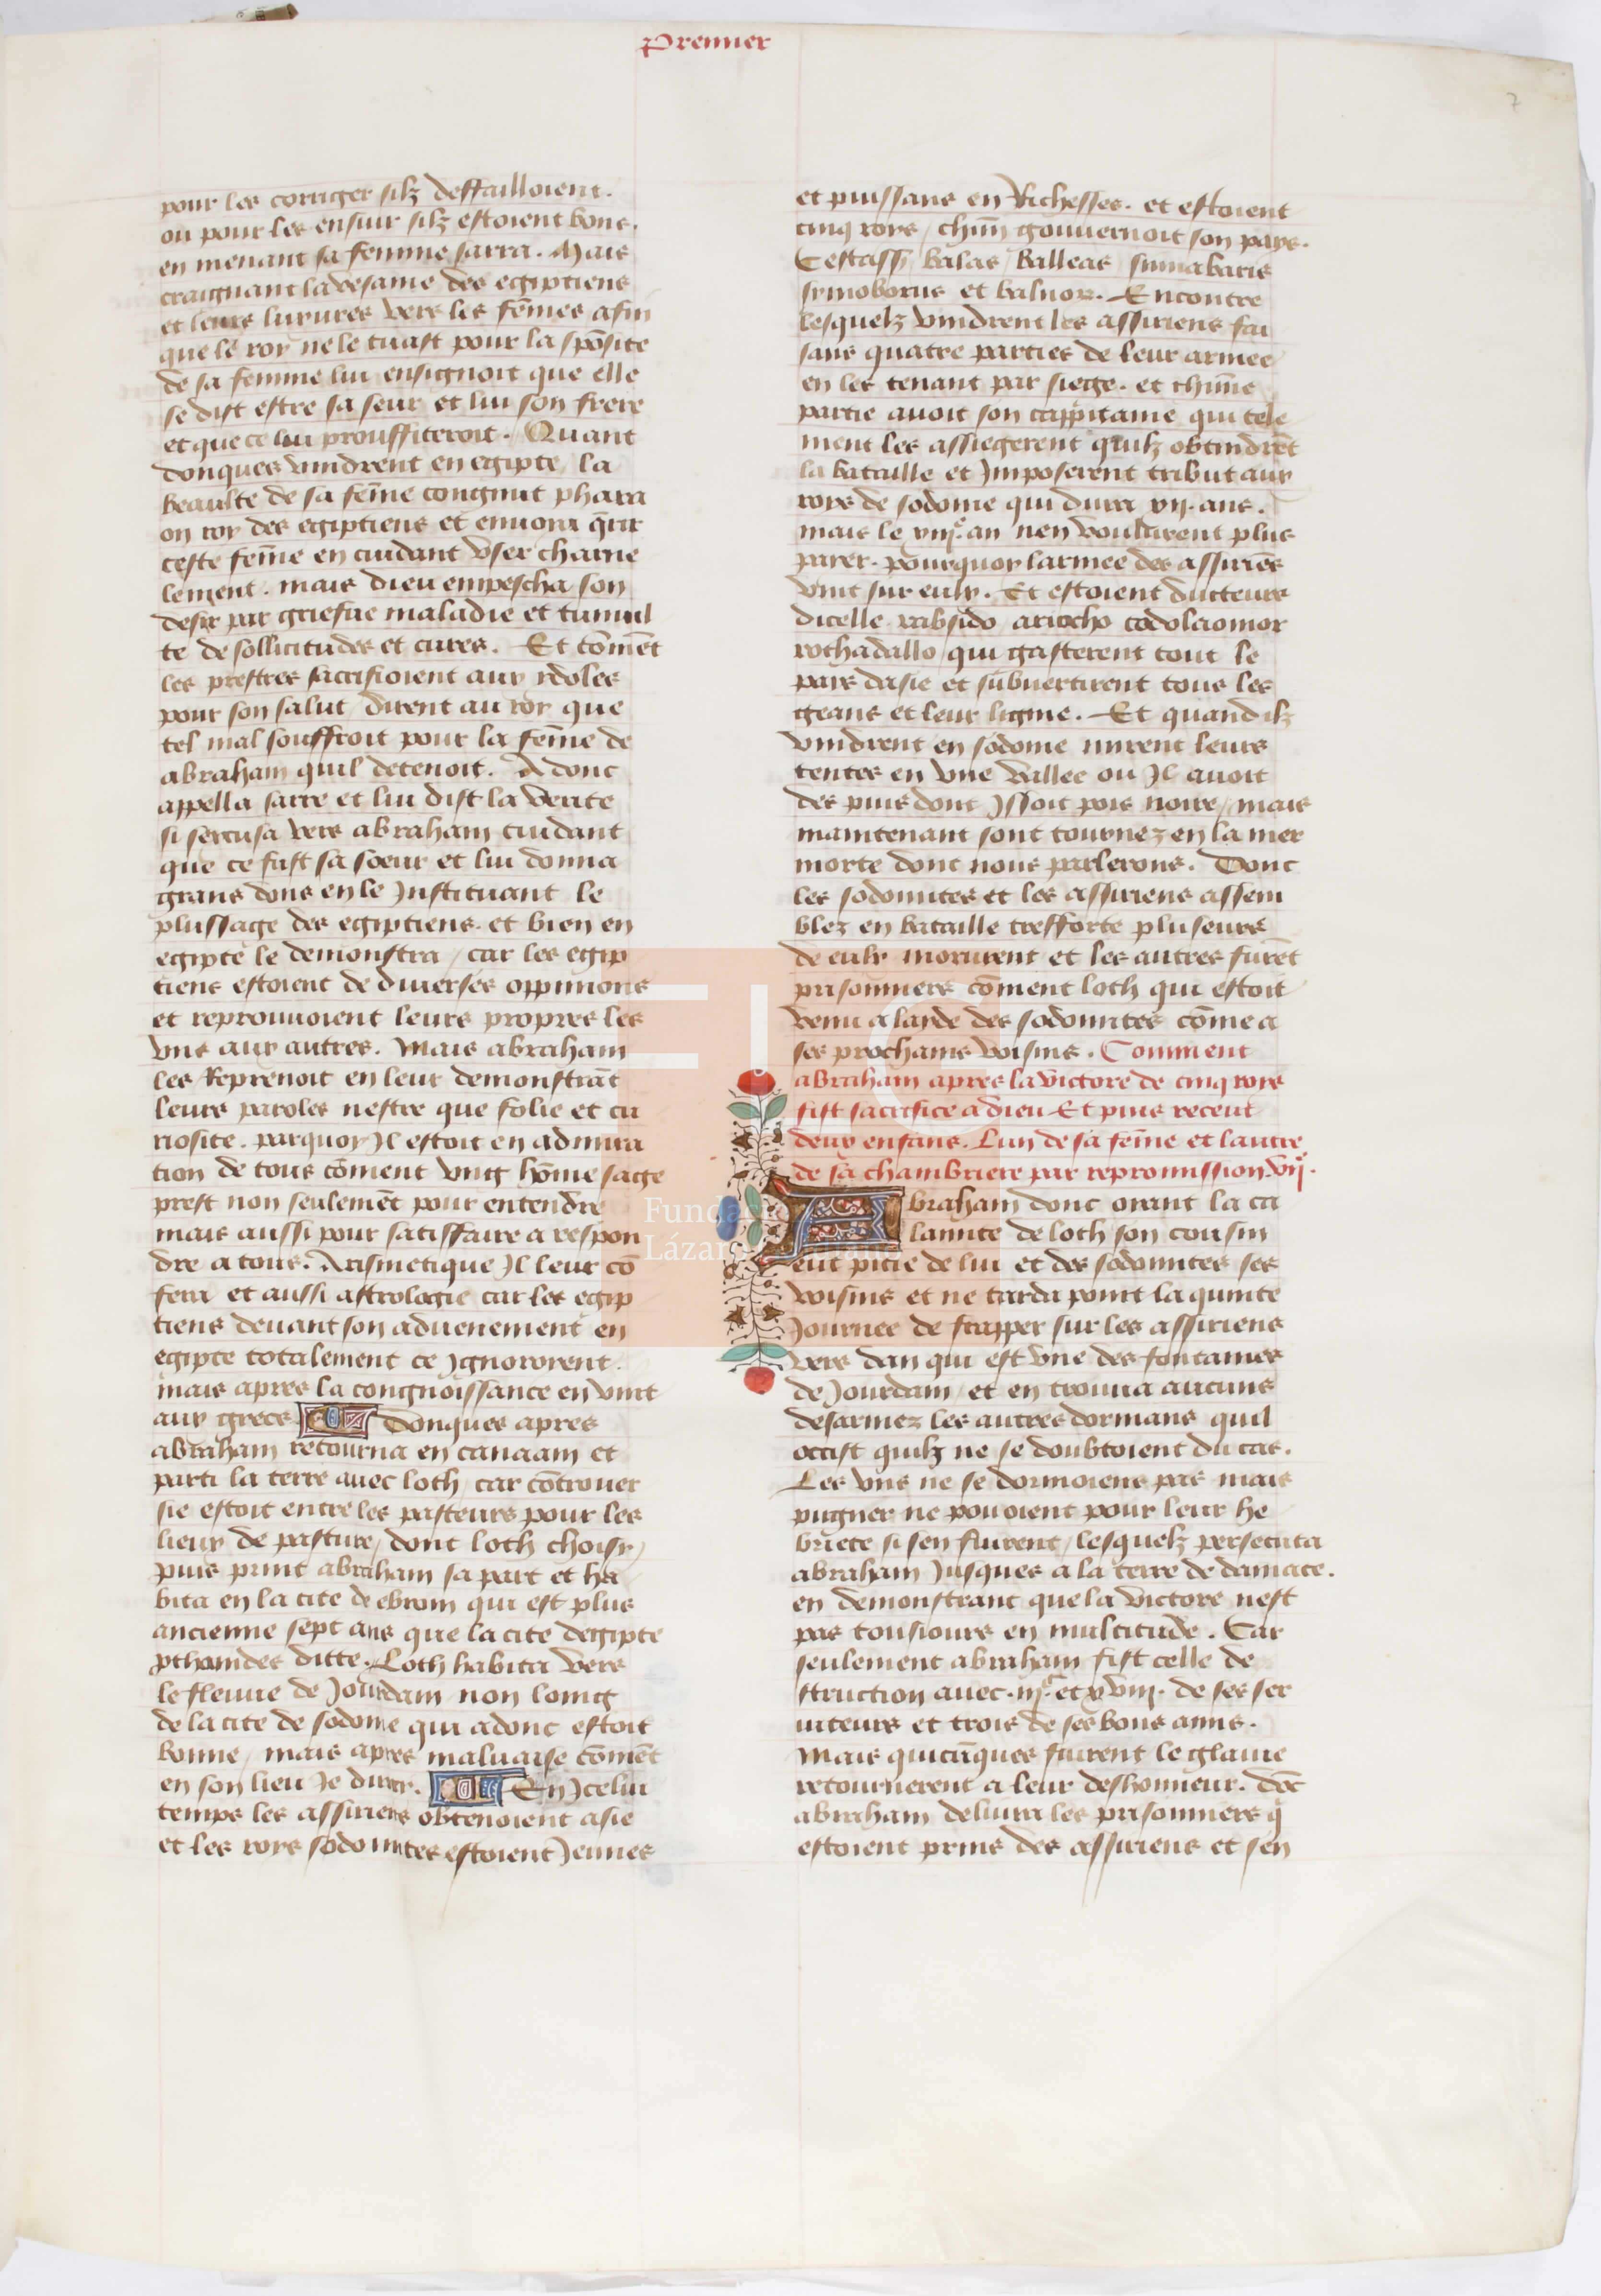 Premier
7
pour les corriger silz deffailloient.
ou pour les ensuir silz estoient bons.
en menant sa femme sarra. Mais
craignant la vesanie des egiptiens
et leurs luxures vers les fēmes afin
que le roy ne le tuast pour la spōsite
de sa femme lui ensignoit que elle
se dist estre sa seur et lui son frere
et que ce lui prouffiteroit. Quant
donques vindrent en egipte la
beaulte de sa fēme congnut phara
on roy des egiptiens et enuoia q̄rir
ceste fēme en cuidant vser charne
lement. mais dieu empescha son
desir par griefue maladie et tumul
te de sollicitudes et cures. Et cōmēt
les prestres sacrifioient aux ydoles
pour son salut / dirent au roy que
tel mal souffroit pour la fēme de
abraham quil detenoit. Adonc
appella sarre et lui dist la verite
si sexcusa vers abraham cuidant
que ce fust sa soeur et lui donna
grans dons en le Instituant le
plussage des egiptiens. et bien en
egipte le demonstra / car les egip
tiens estoient de diuerses oppinions
et reprouuoient leurs propres les
vns aux autres. Mais abraham
les Reprenoit en leur demonstrāt
leurs paroles nestre que folie et cu
riosite. parquoy Il estoit en admira
tion de tous cōment vng hōme sage
prest non seulemēt pour entendre
mais aussi pour satiffaire a respon
dre a tous. Arismetique Il leur cō
fera et aussi astrologie car les egip
tiens deuant son aduenement en
egipte totalement ce Ignororent.
mais apres la congnoissance en vint
aux grecs Donques apres
abraham retourna en canaam et
parti la terre auec loth / car cōtrouer
sie estoit entre les pasteurs pour les
lieux de pasture / dont loth choisy /
puis print abraham sa part et ha
bita en la cite de ebrom qui est plus
ancienne sept ans que la cite degipte
pthamdes ditte. Loth habita vers
le fleuue de Jourdam non loing
de la cite de sodome qui adonc estoit
bonne / mais apres maluaise cōmēt
en son lieu Je diray. En Icelui
temps les assiriens obtenoient asie
et les roys sodomites estoient Jeunes
et puissans en Richesses. et estoient
cinq roys / chūn gouuernoit son pays.
Cestass balas balleas sinnabaris
symoborus et balnor. Encontre
lesquelz vindrent les assiriens fai
sans quatre parties de leur armee
en les tenant par siege. et chūne
partie auoit son cappitaine qui tele
ment les assiegerent quilz obtindrēt
la bataille et Imposerent tribut aux
roys de sodome qui dura xij. ans.
mais le xiij.e an nen voulurent plus
payer. pourquoy larmee des assiriēs
vint sur eulx. Et estoient ducteurs
dicelle rabsido ariocho codolaomor
rothadallo / qui gasterent tout le
pais dasie et subuertirent tous les
geans et leur ligne. Et quand ilz
vindrent en sodome mirent leurs
tentes en vne vallee ou Il auoit
des puis dont Issoit pois noire / mais
maintenant sont tournez en la mer
morte dont nous parlerons. Donc
les sodomites et les assiriens assem
blez en bataille tresforte pluseurs
de eulx morurent et les autres furēt
prisonniers cōment loth qui estoit
venu a layde des sodomites cōme a
ses prochains voisins. Comment
abraham apres la victore de cinq roys
fist sacrifice a dieu Et puis receut
deux enfans. Lun de sa fēme et lautre
de sa chambriere par repromission. vij.
Abraham donc oyant la ca
lamite de loth son cousin
eut pitie de lui et des sodomites ses
voisins et ne tarda point la quinte
Journee de frapper sur les assiriens
vers dan qui est vne des fontaines
de Jourdam / et en trouua aucuns
desarmez les autres dormans quil
occist quilz ne se doubtoient du cas.
Les vns ne se dormoiens pas mais
pugner ne pouoient pour leur he
briete si sen fuirent / lesquelz persecuta
abraham Jusques a la terre de damace.
en demonstrant que la victore nest
pas tousiours en multitude. Car
seulement abraham fist celle de
struction auec. iij.c et xviij. de ses ser
uiteurs et trois de ses bons amis.
Mais quicūques fuirent le glaiue
retournerent a leur deshonneur. Dōc
abraham deliura les prisonniers q̄
estoient prins des assiriens et sen
Fundación
Lázaro Galdiano
FLG